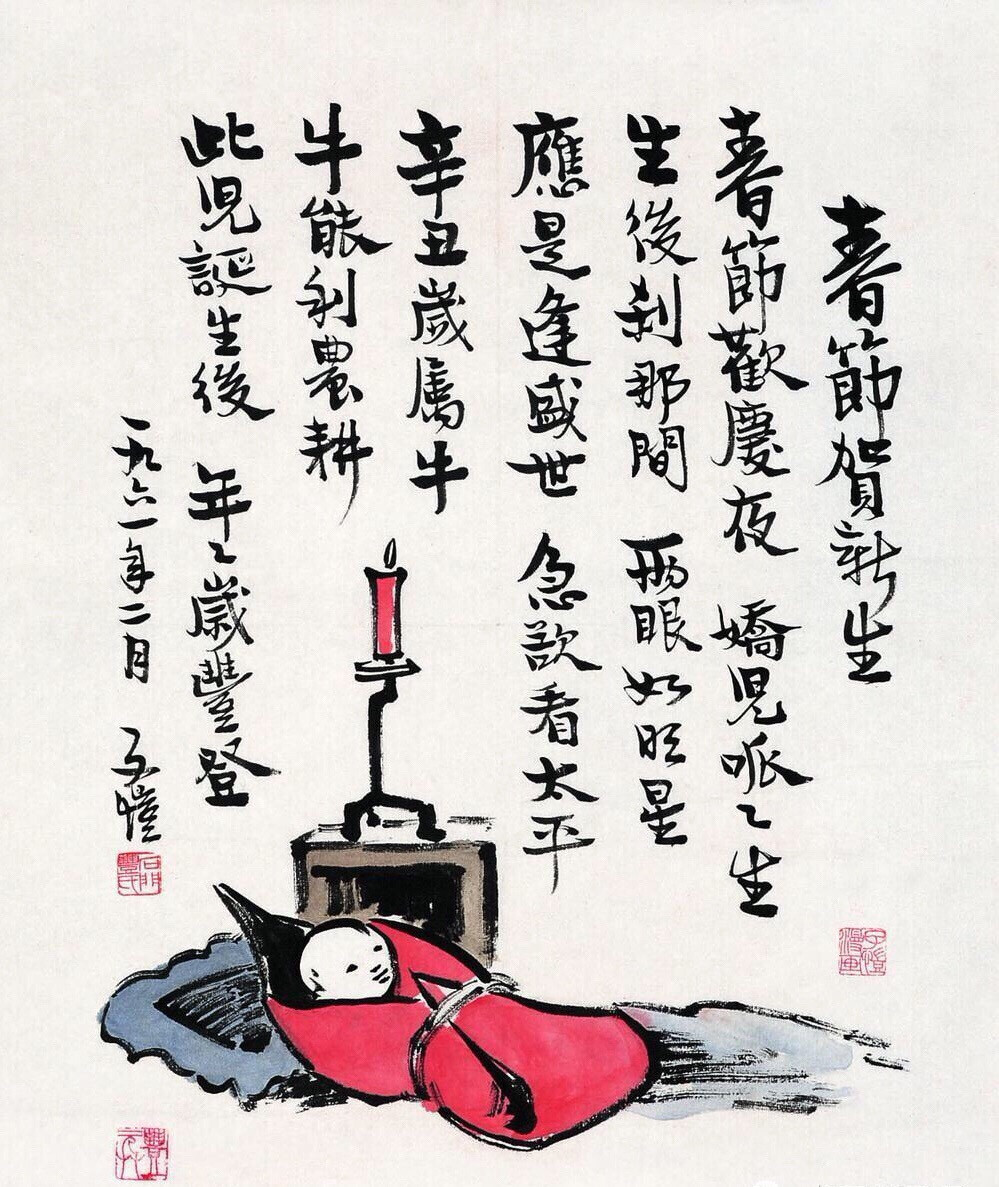 春節賀新生
春節歡慶夜 嬌兒呱々生
生後刹那間 兩眼如明星
應是逢盛世 急欲看太平
辛丑歲屬牛
牛能利農耕
此兒誕生後 年々歲豐登
一九六一年二月 子愷
石門豐氏
子愷漫畫